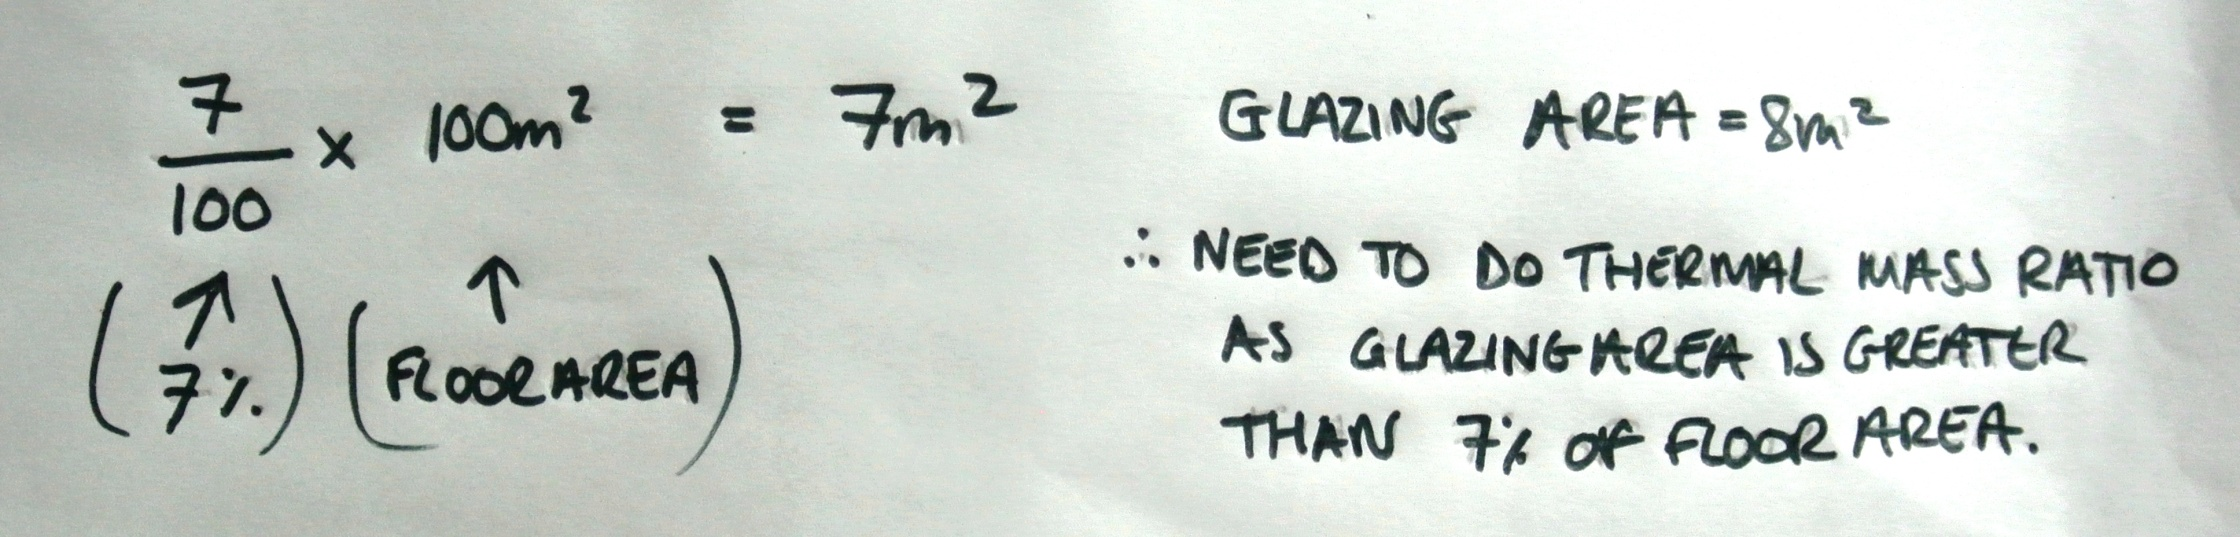 7/100 × 100m² = 7m²
(↑ 7%) (↑ FLOOR AREA)
GLAZING AREA = 8m²
∴ NEED TO DO THERMAL MASS RATIO
AS GLAZING AREA IS GREATER
THAN 7% OF FLOOR AREA.